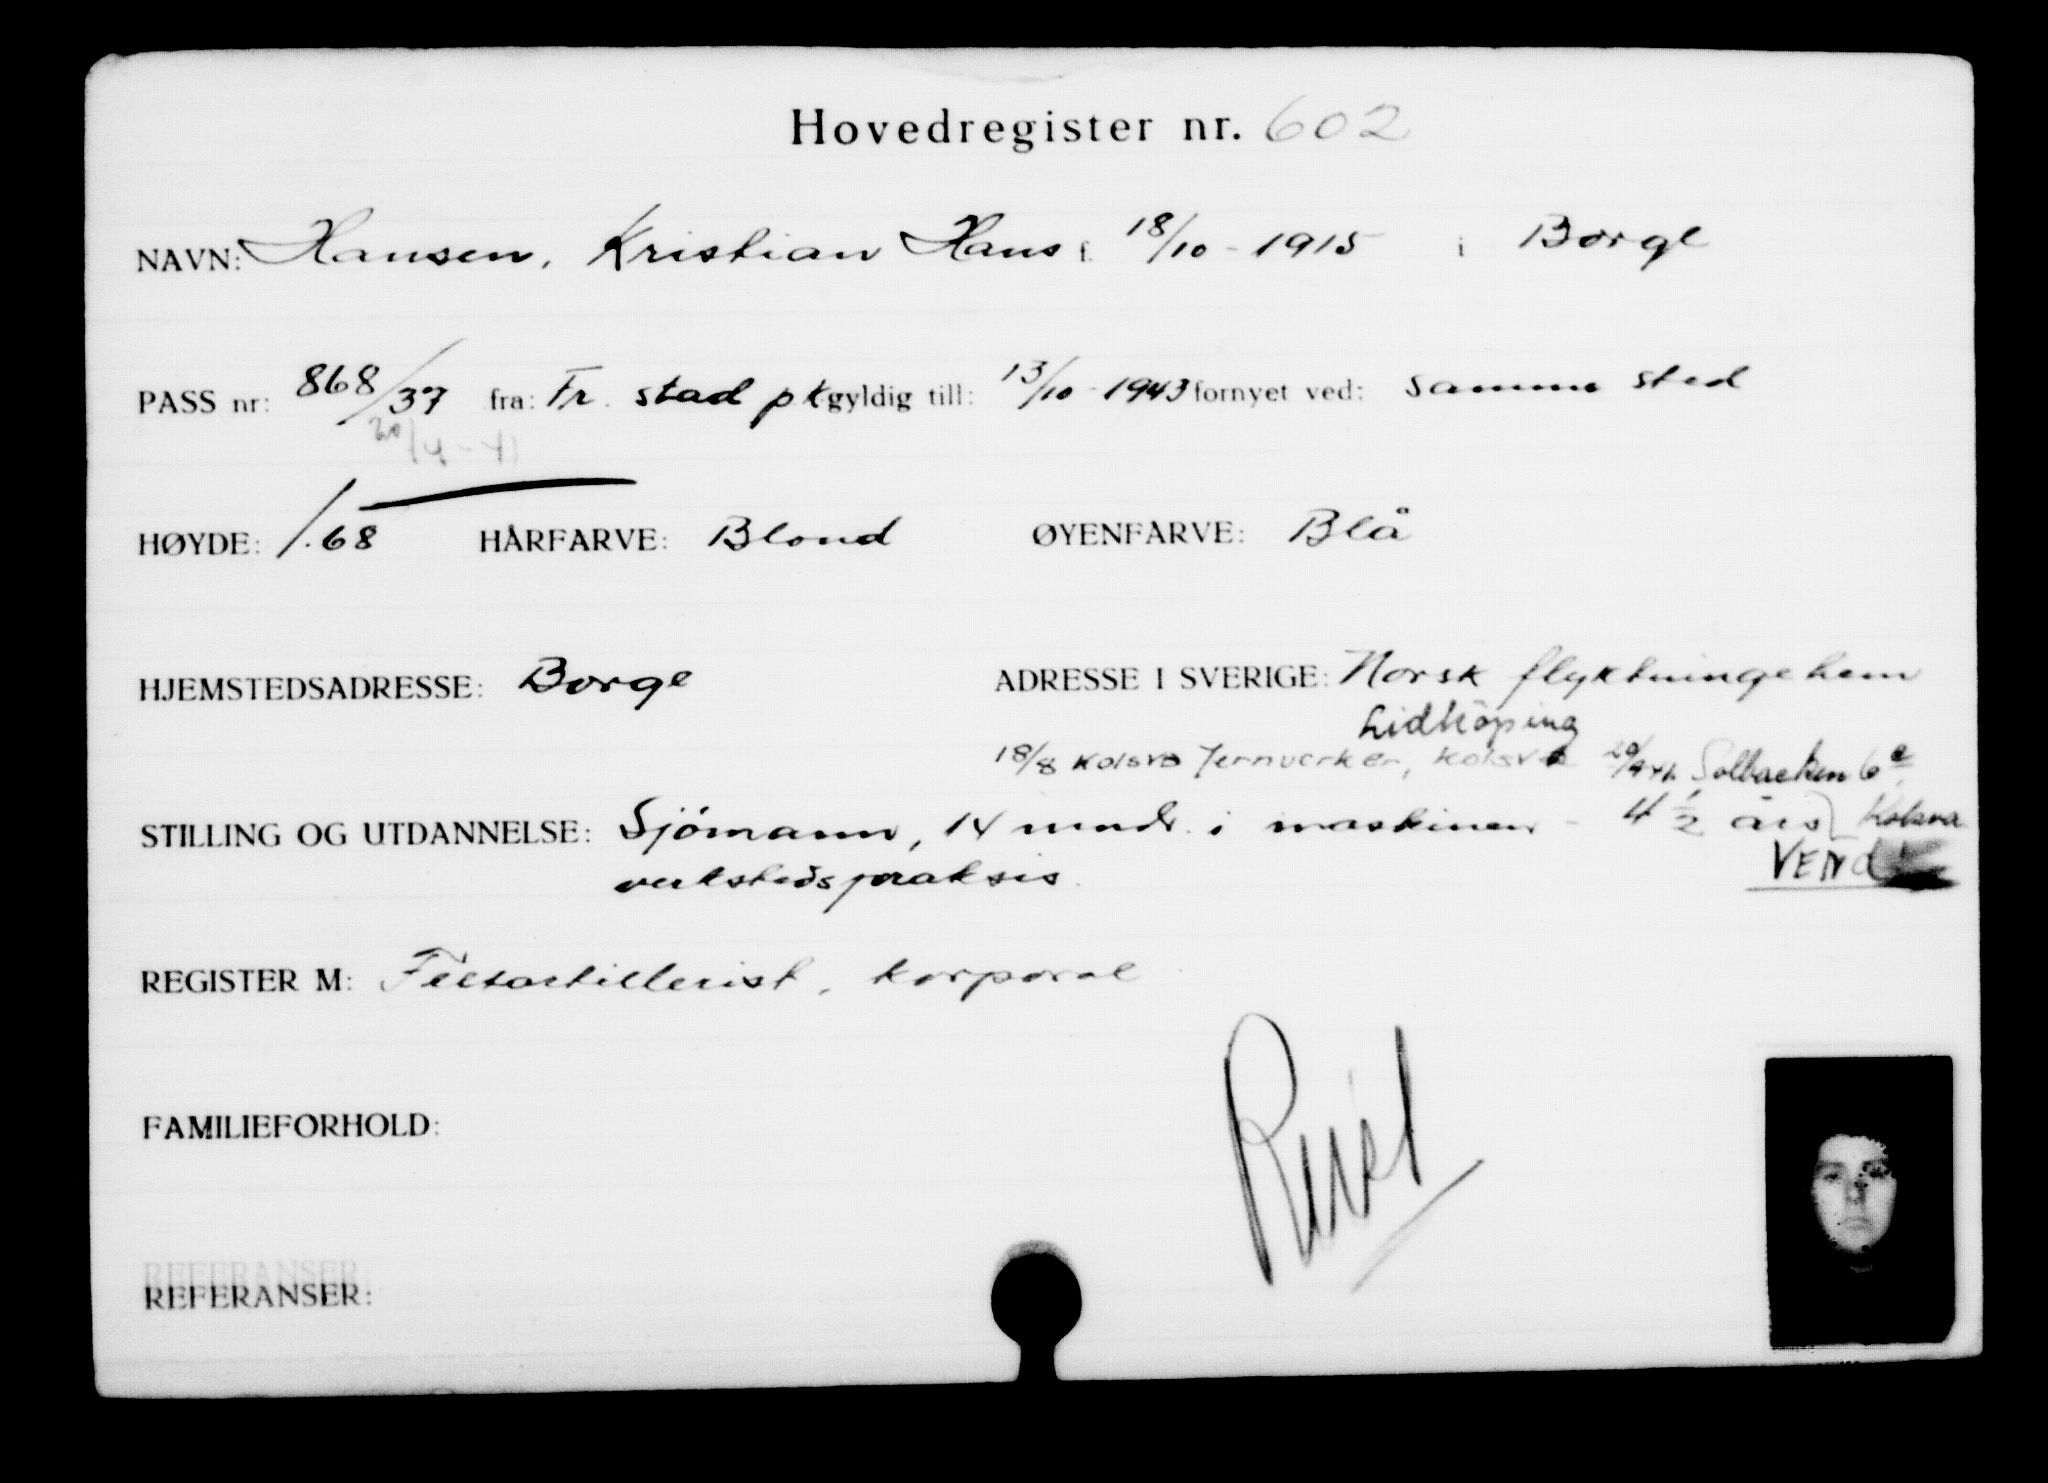 Hovedregister nr. 602
NAVN: Hansen, Kristian Hans f. 18/10 - 1915 i Borge
PASS nr: 868/37 fra: Fr. stad pk gyldig till: 13/10 - 1943 fornyet ved: samme sted
20/4 - 41
HØYDE: 1.68 HÅRFARVE: Blond ØYENFARVE: Blå
HJEMSTEDSADRESSE: Borge ADRESSE I SVERIGE: Norsk flyktningehem
Lidköping
18/8 Kolsva Jernverker, Kolsva Solbacken 6
STILLING OG UTDANNELSE: Sjömann, 14 mndr. i maskinen - 4 1/2 års Kolsva
verkstedspraksis. VEND
REGISTER M: Feltartillerist, korporal
FAMILIEFORHOLD:
REFERANSER
REFERANSER: